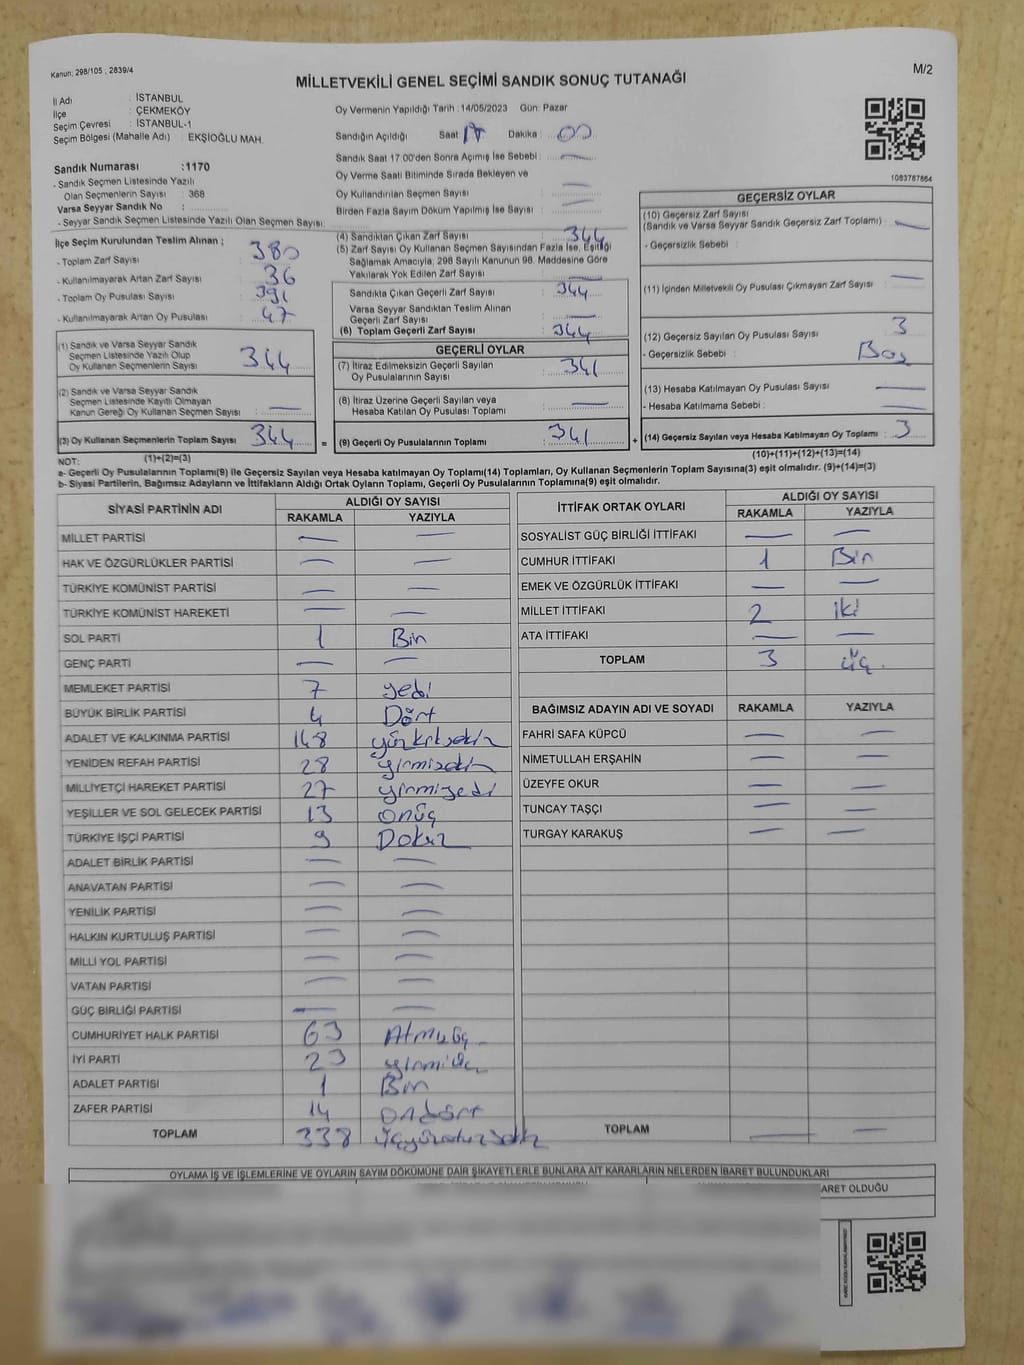 Kanun: 298/105 , 2839/4
M/2
MİLLETVEKİLİ GENEL SEÇİMİ SANDIK SONUÇ TUTANAĞI
İl Adı : İSTANBUL
İlçe : ÇEKMEKÖY
Seçim Çevresi : İSTANBUL-1
Seçim Bölgesi (Mahalle Adı) : EKŞİOĞLU MAH.
Oy Vermenin Yapıldığı Tarih :14/05/2023 Gün: Pazar
Sandığın Açıldığı Saat 17 Dakika : 00
Sandık Saat 17:00'den Sonra Açımış İse Sebebi : —
Oy Verme Saati Bitiminde Sırada Bekleyen ve
Oy Kullandırılan Seçmen Sayısı : —
Birden Fazla Sayım Döküm Yapılmış İse Sayısı : —
1083787864
Sandık Numarası :1170
- Sandık Seçmen Listesinde Yazılı
Olan Seçmenlerin Sayısı : 368
Varsa Seyyar Sandık No :
- Seyyar Sandık Seçmen Listesinde Yazılı Olan Seçmen Sayısı:
İlçe Seçim Kurulundan Teslim Alınan ;
- Toplam Zarf Sayısı : 380
- Kullanılmayarak Artan Zarf Sayısı : 36
- Toplam Oy Pusulası Sayısı : 391
- Kullanılmayarak Artan Oy Pusulası : 47
(1) Sandık ve Varsa Seyyar Sandık
Seçmen Listesinde Yazılı Olup
Oy Kullanan Seçmenlerin Sayısı : 344
(2) Sandık ve Varsa Seyyar Sandık
Seçmen Listesinde Kayıtlı Olmayan
Kanun Gereği Oy Kullanan Seçmen Sayısı : —
(3) Oy Kullanan Seçmenlerin Toplam Sayısı : 344 =
(1)+(2)=(3)
(4) Sandıktan Çıkan Zarf Sayısı : 344
(5) Zarf Sayısı Oy Kullanan Seçmen Sayısından Fazla İse, Eşitliği
Sağlamak Amacıyla; 298 Sayılı Kanunun 98. Maddesine Göre
Yakılarak Yok Edilen Zarf Sayısı : —
Sandıkta Çıkan Geçerli Zarf Sayısı : 344
Varsa Seyyar Sandıktan Teslim Alınan
Geçerli Zarf Sayısı : —
(6) Toplam Geçerli Zarf Sayısı : 344
GEÇERLİ OYLAR
(7) İtiraz Edilmeksizin Geçerli Sayılan
Oy Pusulalarının Sayısı : 341
(8) İtiraz Üzerine Geçerli Sayılan veya
Hesaba Katılan Oy Pusulası Toplamı : —
(9) Geçerli Oy Pusulalarının Toplamı : 341 +
GEÇERSİZ OYLAR
(10) Geçersiz Zarf Sayısı
(Sandık ve Varsa Seyyar Sandık Geçersiz Zarf Toplamı) : —
- Geçersizlik Sebebi :
(11) İçinden Milletvekili Oy Pusulası Çıkmayan Zarf Sayısı : —
(12) Geçersiz Sayılan Oy Pusulası Sayısı : 3
- Geçersizlik Sebebi : Boş
(13) Hesaba Katılmayan Oy Pusulası Sayısı : —
- Hesaba Katılmama Sebebi : —
(14) Geçersiz Sayılan veya Hesaba Katılmayan Oy Toplamı : 3
(10)+(11)+(12)+(13)=(14)
NOT:
a- Geçerli Oy Pusulalarının Toplamı(9) ile Geçersiz Sayılan veya Hesaba katılmayan Oy Toplamı(14) Toplamları, Oy Kullanan Seçmenlerin Toplam Sayısına(3) eşit olmalıdır. (9)+(14)=(3)
b- Siyasi Partilerin, Bağımsız Adayların ve İttifakların Aldığı Ortak Oyların Toplamı, Geçerli Oy Pusulalarının Toplamına(9) eşit olmalıdır.
SİYASİ PARTİNİN ADI ALDIĞI OY SAYISI
RAKAMLA YAZIYLA
MİLLET PARTİSİ — —
HAK VE ÖZGÜRLÜKLER PARTİSİ — —
TÜRKİYE KOMÜNİST PARTİSİ — —
TÜRKİYE KOMÜNİST HAREKETİ — —
SOL PARTİ 1 Bir
GENÇ PARTİ — —
MEMLEKET PARTİSİ 7 yedi
BÜYÜK BİRLİK PARTİSİ 4 Dört
ADALET VE KALKINMA PARTİSİ 148 yüzkırksekiz
YENİDEN REFAH PARTİSİ 28 yirmisekiz
MİLLİYETÇİ HAREKET PARTİSİ 27 yirmiyedi
YEŞİLLER VE SOL GELECEK PARTİSİ 13 onüç
TÜRKİYE İŞÇİ PARTİSİ 9 Dokuz
ADALET BİRLİK PARTİSİ — —
ANAVATAN PARTİSİ — —
YENİLİK PARTİSİ — —
HALKIN KURTULUŞ PARTİSİ — —
MİLLİ YOL PARTİSİ — —
VATAN PARTİSİ — —
GÜÇ BİRLİĞİ PARTİSİ — —
CUMHURİYET HALK PARTİSİ 63 Atmışüç
İYİ PARTİ 23 yirmiüç
ADALET PARTİSİ 1 Bir
ZAFER PARTİSİ 14 ondört
TOPLAM 338 üçyüzotuzsekiz
İTTİFAK ORTAK OYLARI ALDIĞI OY SAYISI
RAKAMLA YAZIYLA
SOSYALİST GÜÇ BİRLİĞİ İTTİFAKI — —
CUMHUR İTTİFAKI 1 Bir
EMEK VE ÖZGÜRLÜK İTTİFAKI — —
MİLLET İTTİFAKI 2 iki
ATA İTTİFAKI — —
TOPLAM 3 üç
BAĞIMSIZ ADAYIN ADI VE SOYADI RAKAMLA YAZIYLA
FAHRİ SAFA KÜPCÜ — —
NİMETULLAH ERŞAHİN — —
ÜZEYFE OKUR — —
TUNCAY TAŞÇI — —
TURGAY KARAKUŞ — —
TOPLAM — —
OYLAMA İŞ VE İŞLEMLERİNE VE OYLARIN SAYIM DÖKÜMÜNE DAİR ŞİKAYETLERLE BUNLARA AİT KARARLARIN NELERDEN İBARET BULUNDUKLARI
ARET OLDUĞU